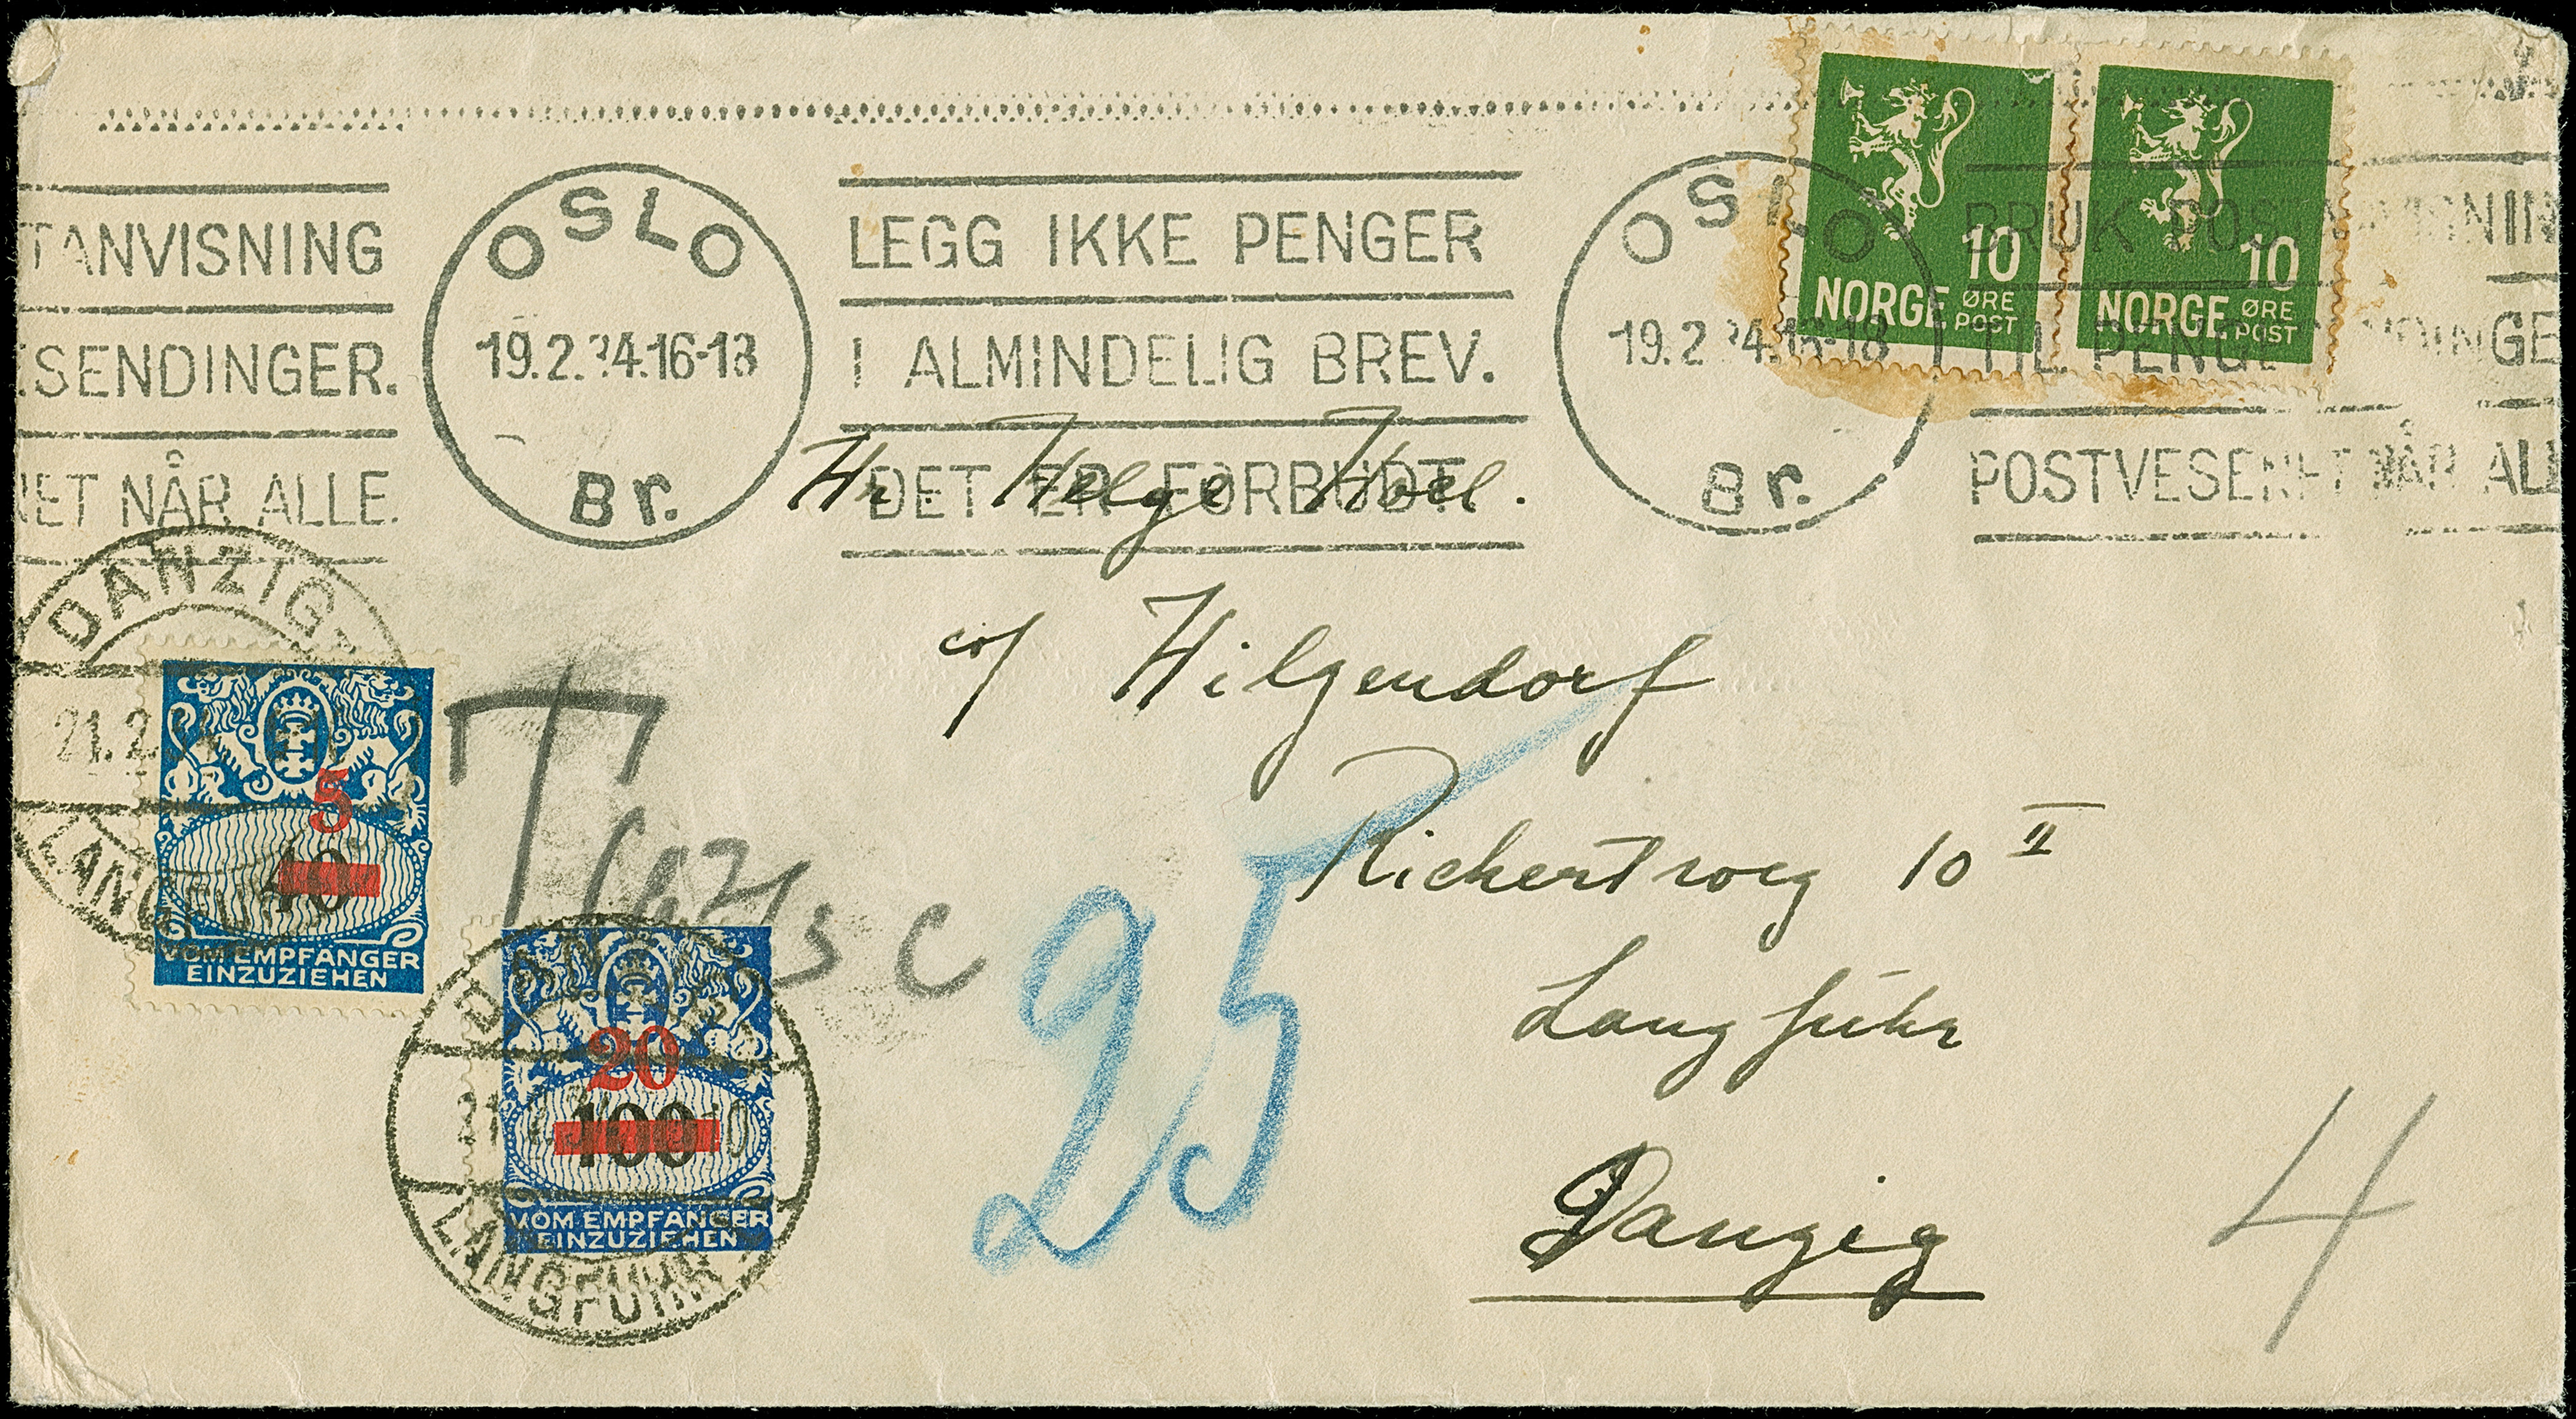 TANVISNING
SENDINGER.
ET NÅR ALLE.
OSLO
19.2.34.16-18
Br.
LEGG IKKE PENGER
I ALMINDELIG BREV.
DET ER FORBUDT.
OSLO
19.2.34.16-18
Br.
BRUK POSTANVISNIN
TIL PENGESENDINGE
POSTVESENET NÅR ALL
10
NORGE ØRE
POST
10
NORGE ØRE
POST
Hr. Helge Hoel.
c/o Hilgendorf
Rickertweg 10 II
Langfuhr
Danzig
DANZIG
21.2.
LANGFUHR
5
10
VOM EMPFÄNGER
EINZUZIEHEN
T
c
25
4
DANZIG
21
LANGFUHR
20
100
VOM EMPFÄNGER
EINZUZIEHEN